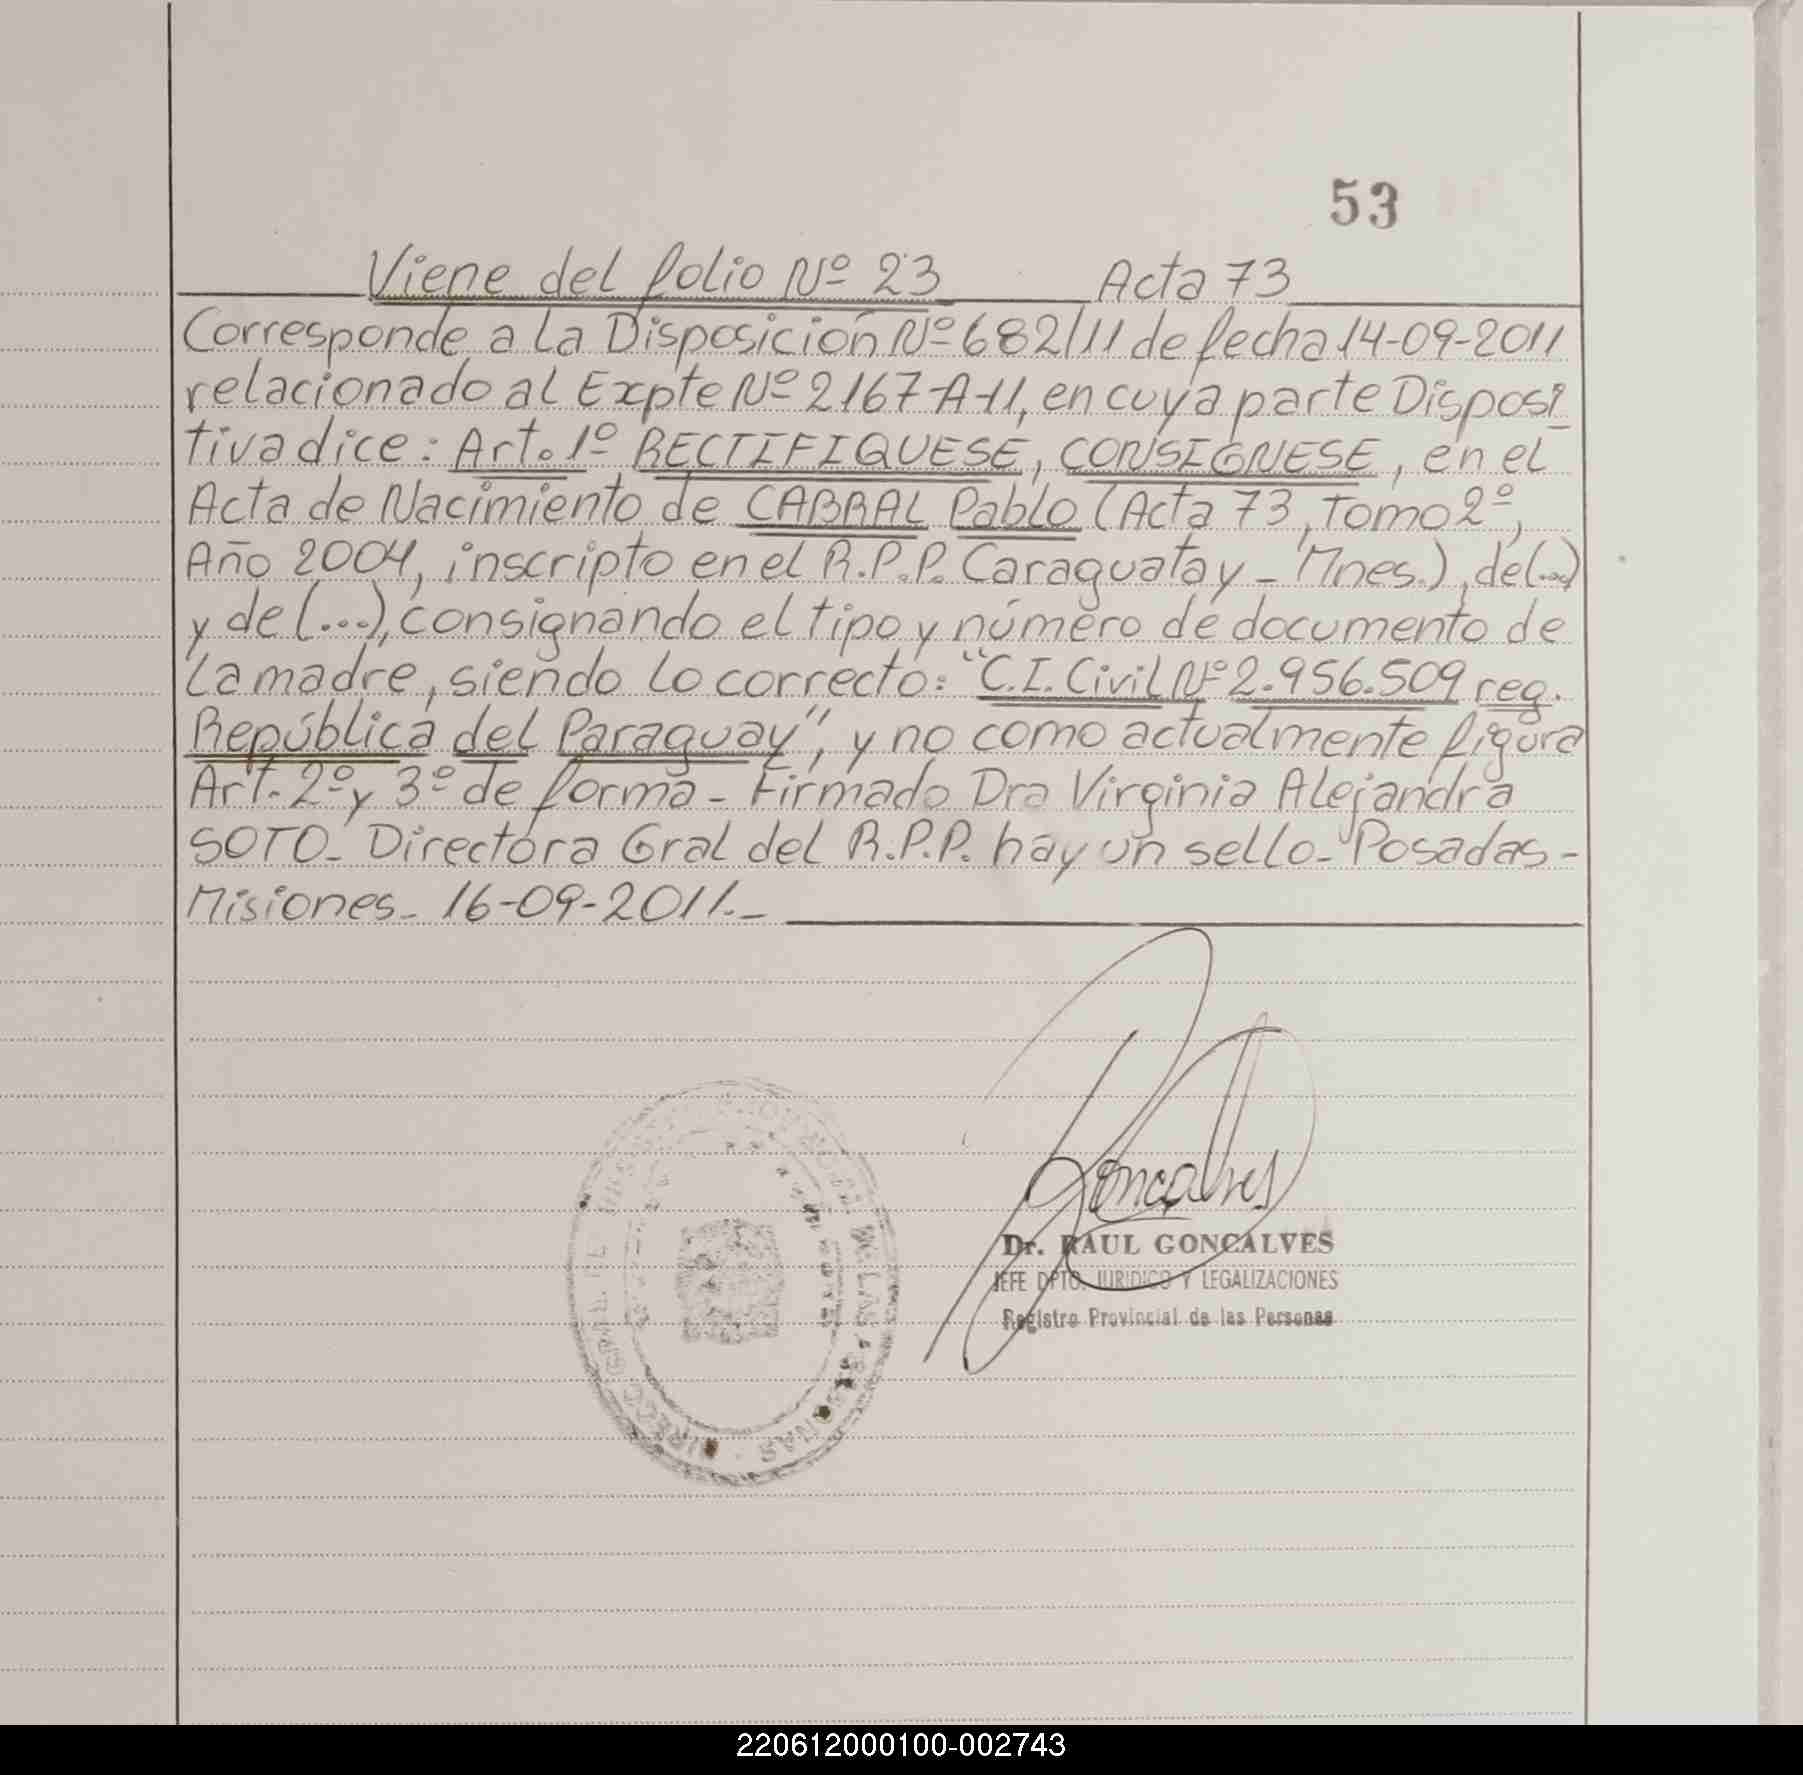 53
Viene del folio Nº 23 Acta 73
Corresponde a la Disposición Nº 682/11 de fecha 14-09-2011
relacionado al Expte Nº 2167-A-11, en cuya parte Disposi
tiva dice: Art. 1º RECTIFIQUESE, CONSIGNESE, en el
Acta de Nacimiento de CABRAL Pablo (Acta 73, Tomo 2º,
Año 2004, inscripto en el R.P.P. Caraguatay - Mnes.), de (...)
y de (...), consignando el tipo y número de documento de
la madre, siendo lo correcto: "C.I. Civil Nº 2.956.509 reg.
República del Paraguay", y no como actualmente figura
Art. 2º y 3º de forma - Firmado Dra Virginia Alejandra
SOTO - Directora Gral del R.P.P. hay un sello - Posadas -
Misiones - 16-09-2011.-
Goncalves
Dr. RAUL GONCALVES
JEFE DPTO. JURIDICO Y LEGALIZACIONES
Registro Provincial de las Personas
DE LAS PERSONAS
220612000100-002743